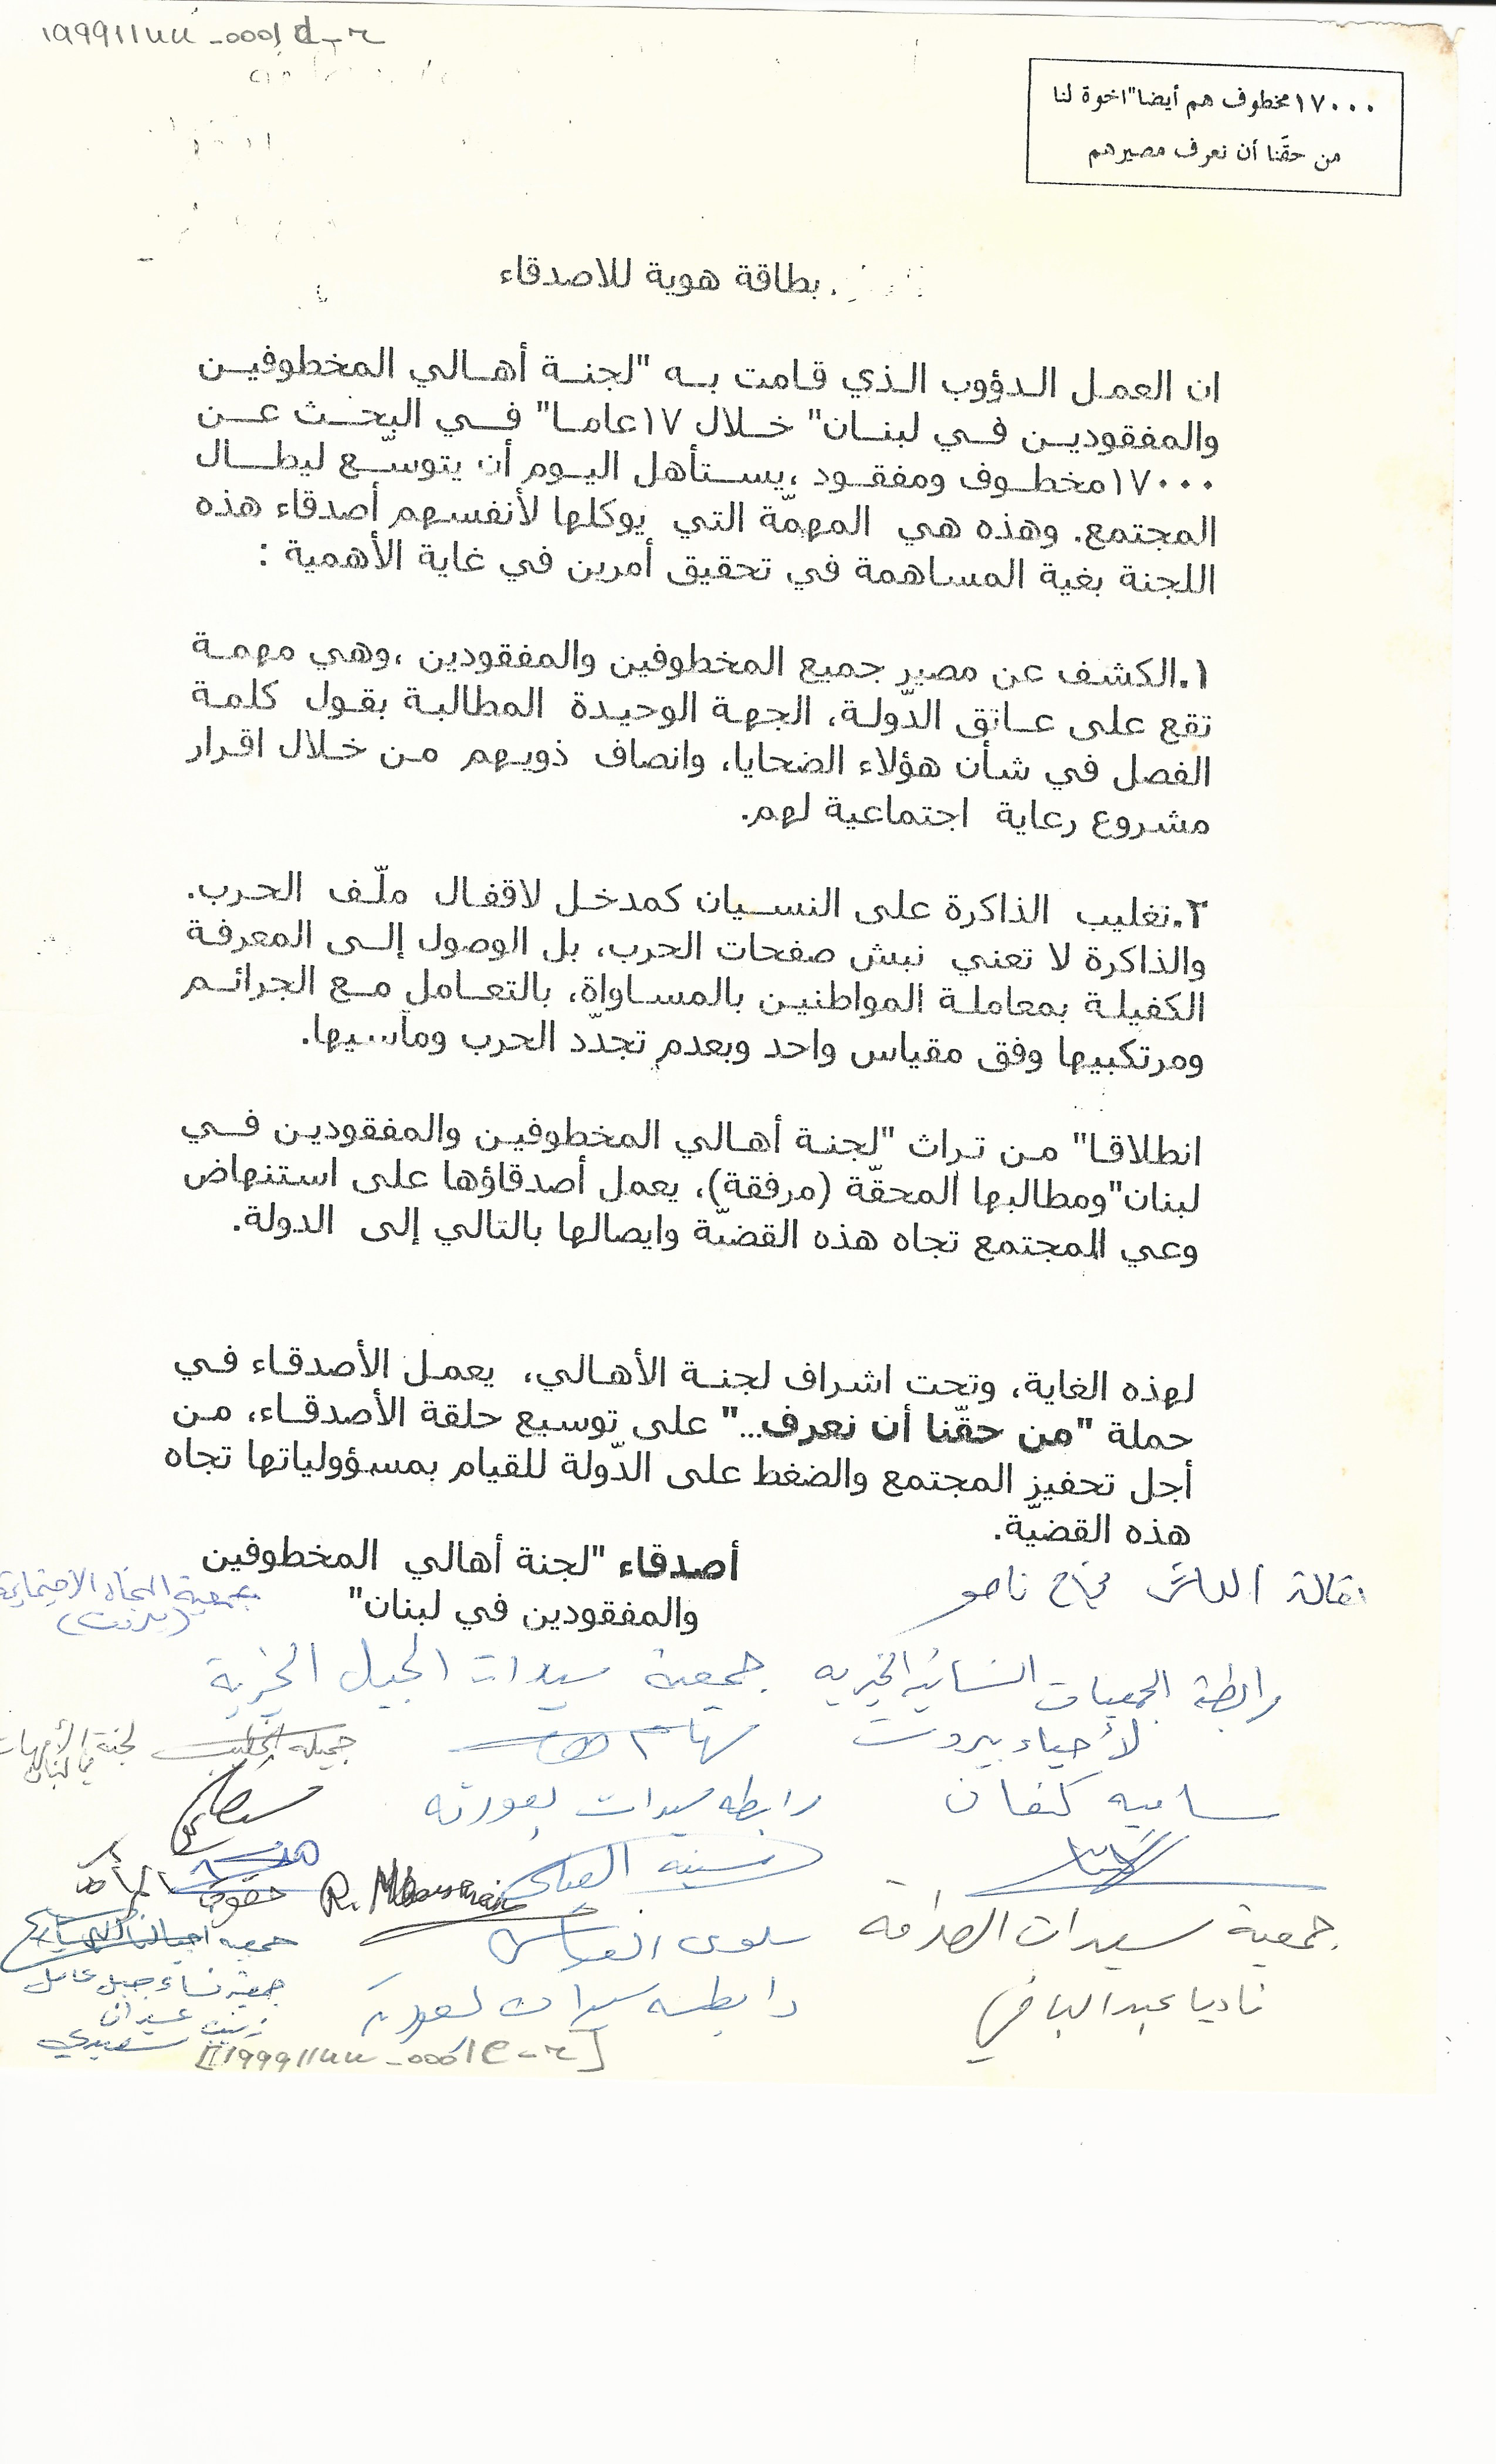 ١٧٠٠٠ مخطوف هم أيضا" اخوة لنا
من حقّنا أن نعرف مصيرهم
بطاقة هوية للاصدقاء
ان العمل الدؤوب الذي قامت به "لجنة أهالي المخطوفين
والمفقودين في لبنان" خلال ١٧عاما" في البحث عن
١٧٠٠٠مخطوف ومفقود ،يستأهل اليوم أن يتوسّع ليطال
المجتمع. وهذه هي المهمّة التي يوكلها لأنفسهم أصدقاء هذه
اللجنة بغية المساهمة في تحقيق أمرين في غاية الأهمية :
١.الكشف عن مصير جميع المخطوفين والمفقودين ،وهي مهمة
تقع على عاتق الدّولة، الجهة الوحيدة المطالبة بقول كلمة
الفصل في شأن هؤلاء الضحايا، وانصاف ذويهم من خلال اقرار
مشروع رعاية اجتماعية لهم.
٢.تغليب الذاكرة على النسيان كمدخل لاقفال ملّف الحرب.
والذاكرة لا تعني نبش صفحات الحرب، بل الوصول إلى المعرفة
الكفيلة بمعاملة المواطنين بالمساواة، بالتعامل مع الجرائم
ومرتكبيها وفق مقياس واحد وبعدم تجدّد الحرب ومآسيها.
انطلاقا" من تراث "لجنة أهالي المخطوفين والمفقودين في
لبنان"ومطالبها المحقّة (مرفقة)، يعمل أصدقاؤها على استنهاض
وعي المجتمع تجاه هذه القضيّة وايصالها بالتالي إلى الدولة.
لهذه الغاية، وتحت اشراف لجنة الأهالي، يعمل الأصدقاء في
حملة "من حقّنا أن نعرف..." على توسيع حلقة الأصدقاء، من
أجل تحفيز المجتمع والضغط على الدّولة للقيام بمسؤولياتها تجاه
هذه القضيّة.
أصدقاء "لجنة أهالي المخطوفين
والمفقودين في لبنان"
جمعية النجاة الاجتماعية
رابطة الجمعيات النسائية الخيرية جمعية سيدات الجبل الخيرية
لأحياء بيروت سهام
سامية كنفان رابطة سيدات
حقوق المرأة
جمعية سيدات سلوى
جمعية نساء جبل عامل
ناديا عبد الباقي رابطة سيدات
زينب
سعيدي